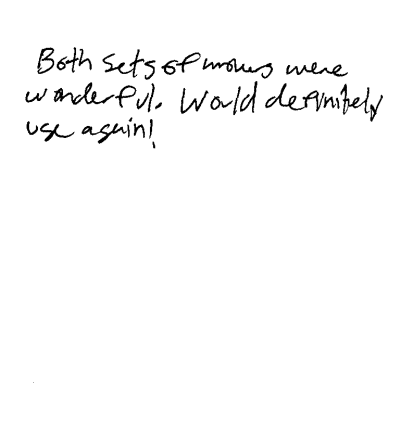 Both sets of movers were
wonderful. Would definitely
use again!